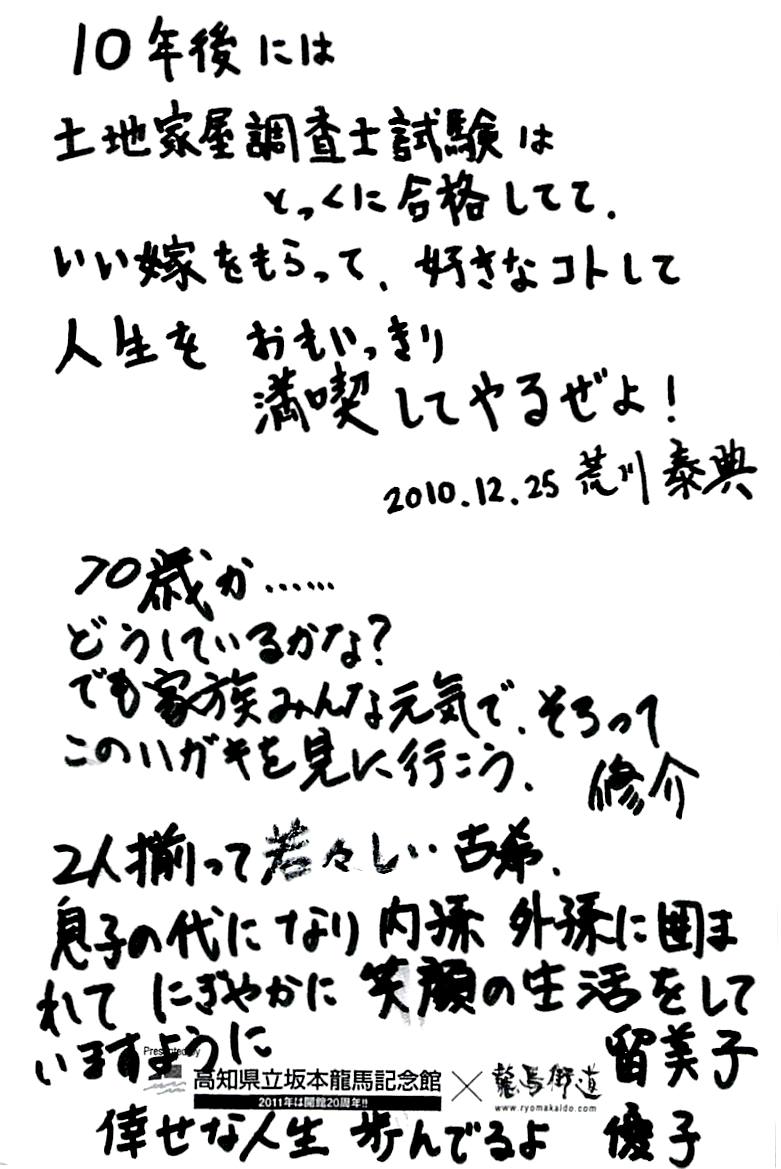 10年後には
土地家屋調査士試験は
とっくに合格してて、
いい嫁をもらって、好きなコトして
人生を おもいっきり
満喫してやるぜよ!
2010.12.25 荒川泰典
70歳か……
どうしているかな?
でも家族みんな元気で、そろって
このハガキを見に行こう。 修介
2人揃って若々しい古希、
息子の代になり内孫 外孫に囲ま
れて にぎやかに 笑顔の生活をして
いますように 留美子
Presented by
高知県立坂本龍馬記念館 × 龍馬街道
2011年は開館20周年!!
www.ryomakaldo.com
倖せな人生 歩んでるよ 優子